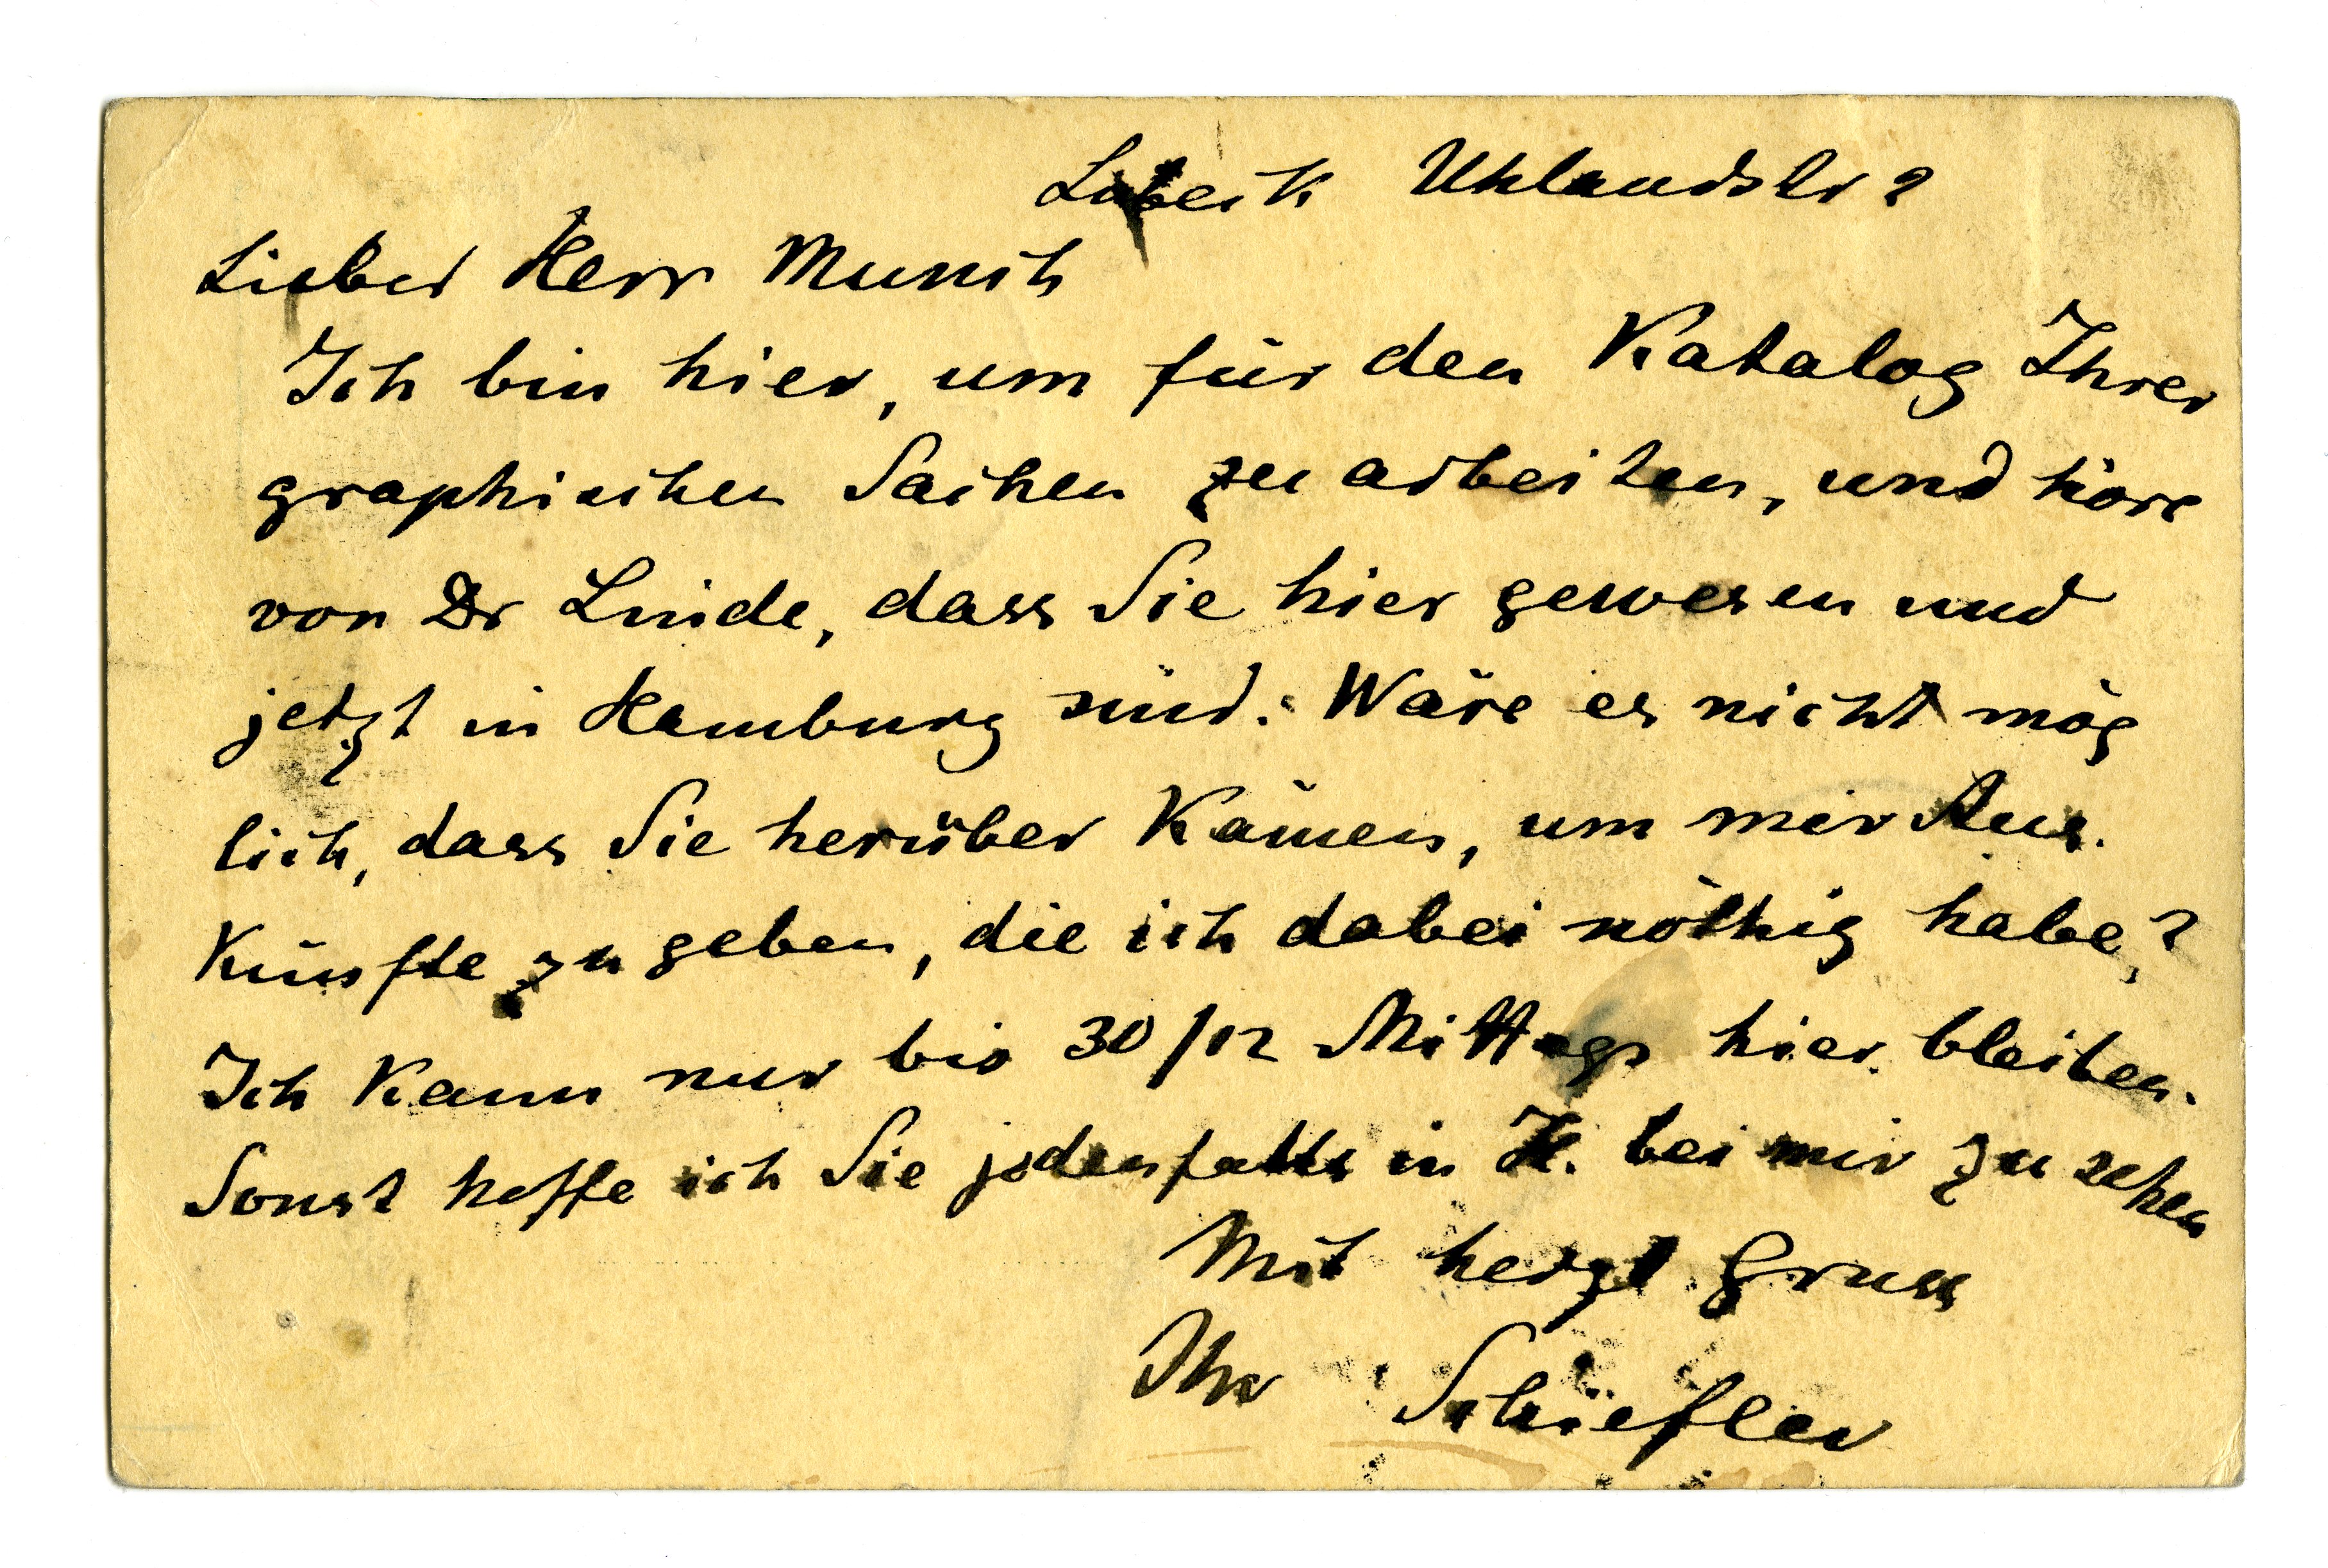 Lübeck Uhlandstr 2
Lieber Herr Munch
Ich bin hier, um für den Katalog Ihrer
graphischen Sachen zu arbeiten, und höre
von Dr Linde, dass Sie hier gewesen und
jetzt in Hamburg sind. Wäre es nicht mög
lich, dass Sie herüber kämen, um mir Aus-
künfte zu geben, die ich dabei nöthig habe?
Ich kann nur bis 30/12 Mittags hier bleiben.
Sonst hoffe ich Sie jedenfalls in H. bei mir zu sehen
Mit herzl Gruss
Ihr Schiefler